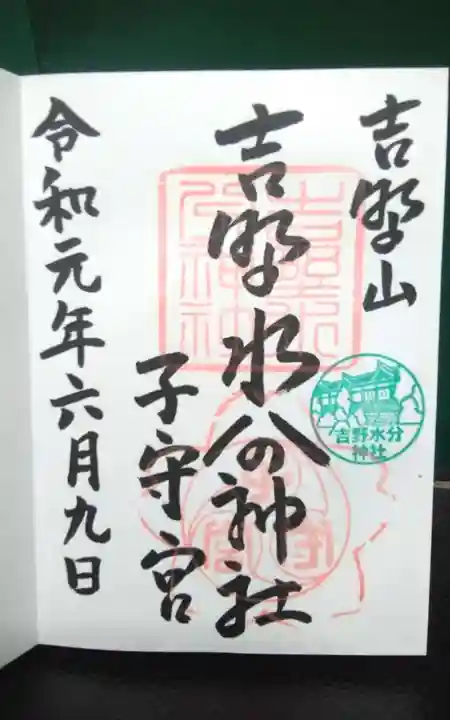 吉野山
吉野水分神社
子守宮
令和元年六月九日
吉野水分
神社